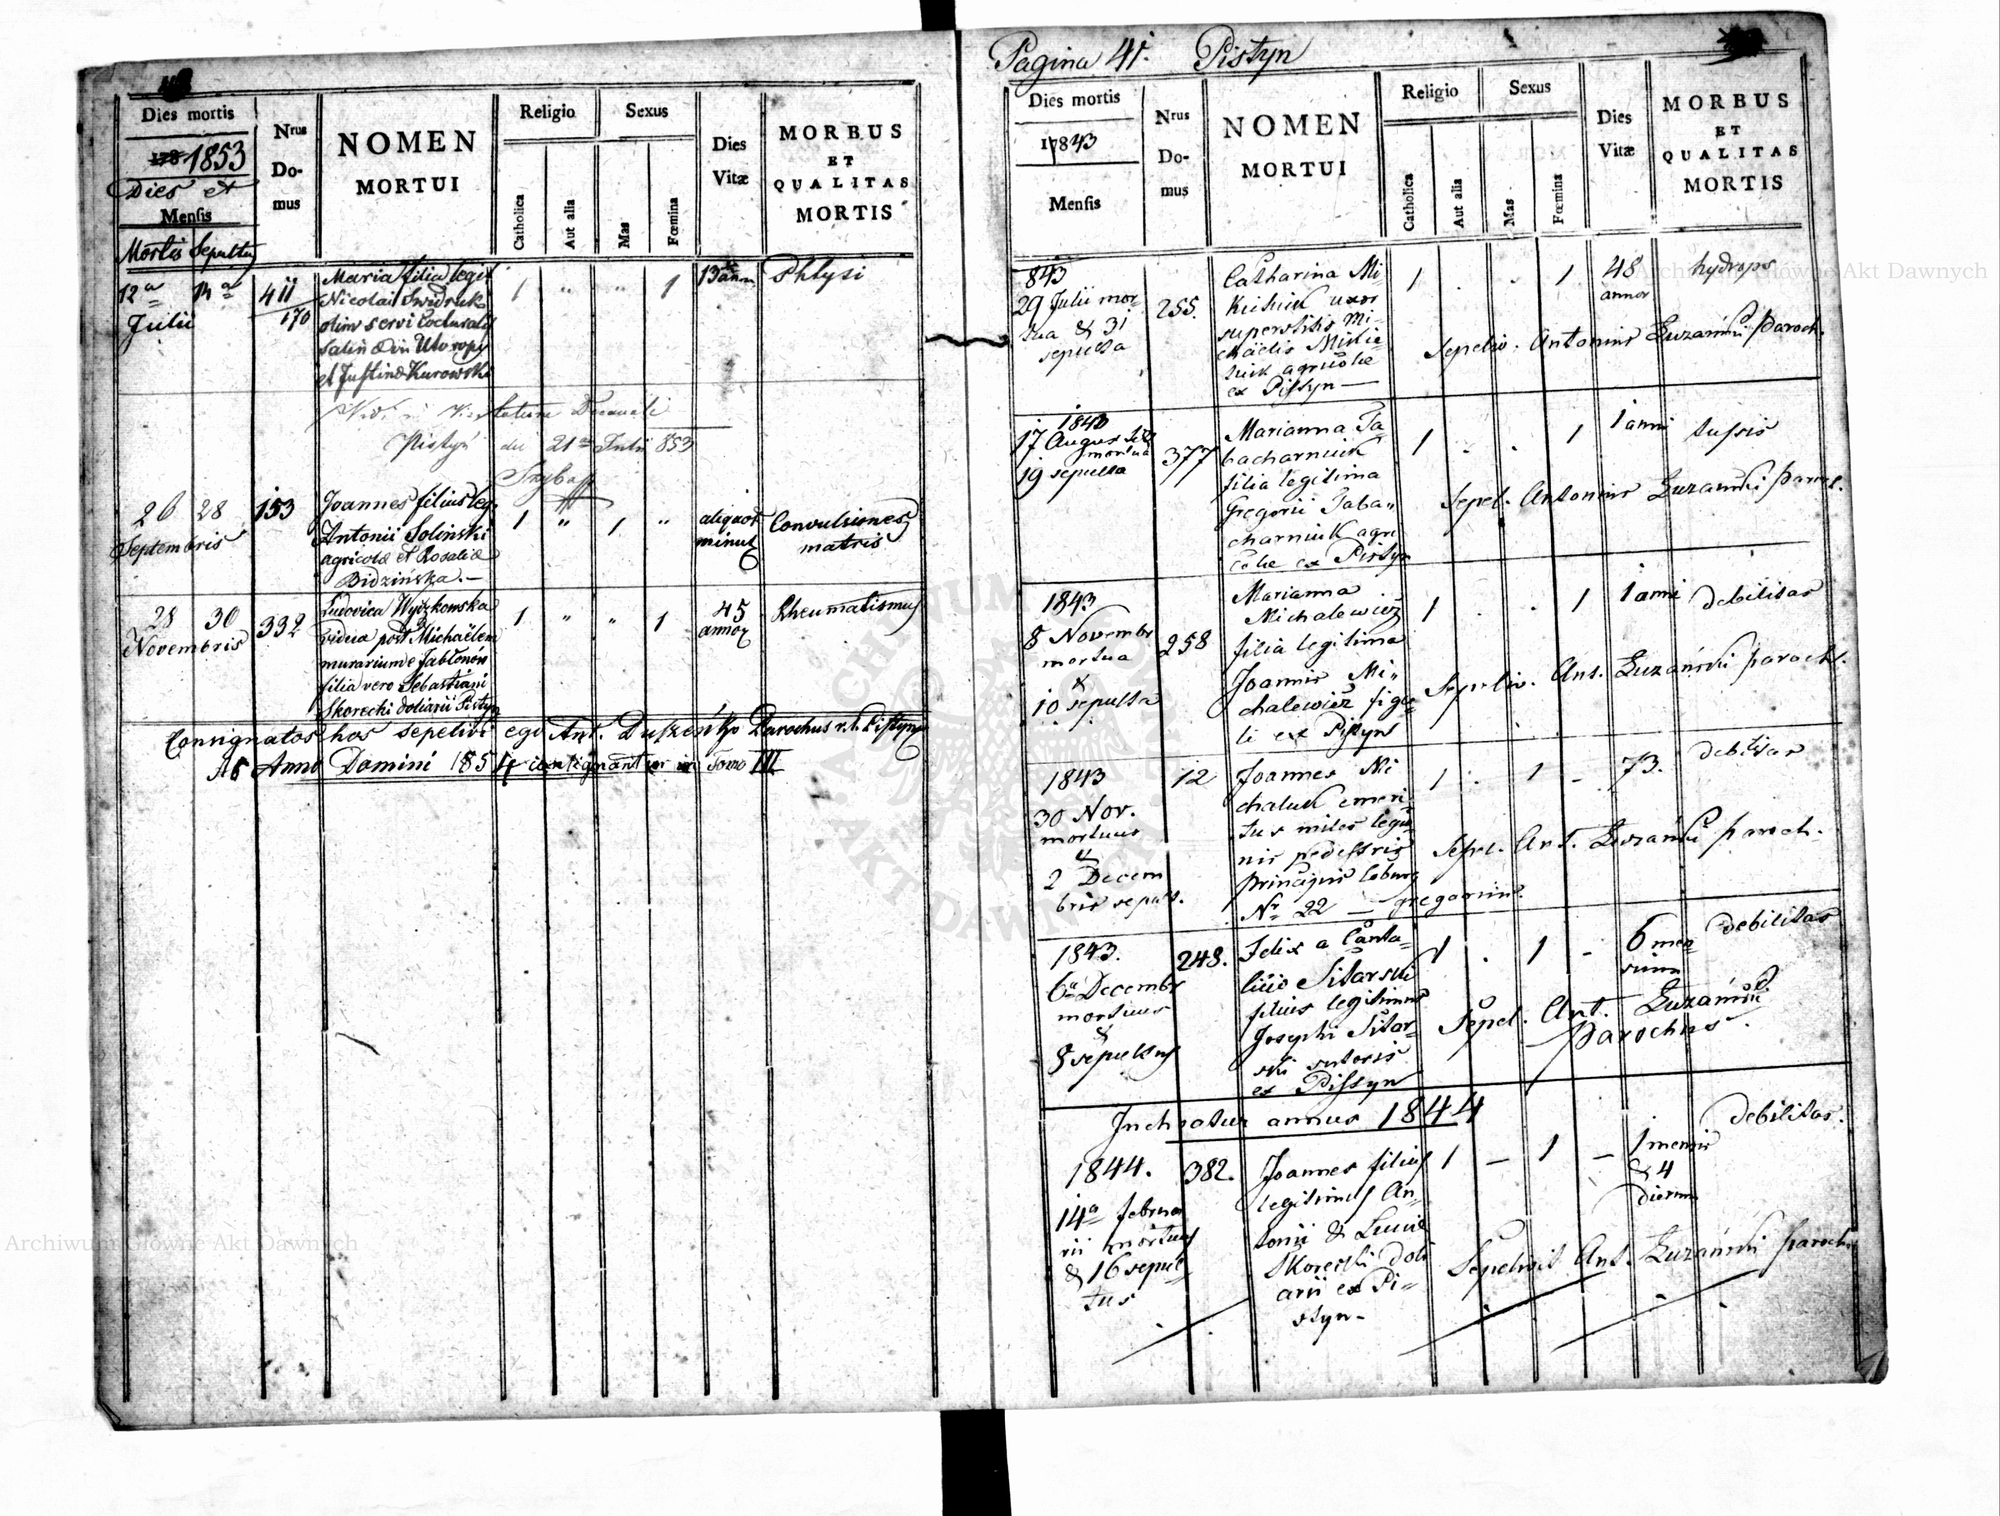 Dies mortis
1853
Dies et
Mensis
Mortis Sepultus
Nrus
Do-
mus
NOMEN
MORTUI
Religio
Catholica
Aut alia
Sexus
Mas
Fœmina
Dies
Vitæ
MORBUS
ET
QUALITAS
MORTIS
12a 14a
Julii
411
170
Maria filia legit
Nicolai Swidruk
olim servi
et Justina Kurowski
1 " " 1
13 ann
Phtysi
Pistyń die 21a Julii 853
26 28
Septembris
153
Joannes filius leg.
Antonii Solinski
agricolæ et Rosaliæ
Bidzińska.—
1 " 1 "
aliquot
minut
Convulsiones
matris
28 30
Novembris
332
Ludovica Wyszkowska
vidua post Michaëlem
murarium e Jabłonów
filia vero Sebastiani
Skorecki doliarii Pistyn
1 " " 1
45
annor
Rheumatismus
Consignatos hos sepelivi ego Ant. Parochus r. l. Pistyn
Ab Anno Domini 1854 consignantur in Tomo III
Pagina 41. Pistyn
Dies mortis
17843
Mensis
Nrus
Do-
mus
NOMEN
MORTUI
Religio
Catholica
Aut alia
Sexus
Mas
Fœmina
Dies
Vitæ
MORBUS
ET
QUALITAS
MORTIS
843
29 Julii mor-
tua & 31
sepulta
255.
Catharina Mi-
uxor
superstitis Mi-
chaëlis
agricolæ
ex Pistyn —
1 . . 1
48
annor
hydrops
Sepeliv. Antonius Łuzański Paroch.
1843
17 Augusti
mortua
19 sepulta
377
Marianna Ta-
bacharniuk
filia legitima
Gregorii Taba-
charniuk agri
colæ ex Pistyn
1 . . 1
1 anni
tussis
Sepel. Antonius Łuzański Paroc.
1843
8 Novembr
mortua
&
10 sepulta
258
Marianna
Michalewicz
filia legitima
Joannis Mi-
chalewicz figu-
li ex Pistyn
1 . . 1
1 anni
debilitas
Sepeliv. Ant. Łuzański paroch.
1843
30 Nov.
mortuus
&
2 Decem
bris sepult.
12
Joannes Mi
chaluk emeri-
tus miles legio-
nis pedestris
Principis Coburg
Nr 22 — gregarius.
1 . 1 -
73.
debilitas
Sepel. Ant. Łuzański paroch.
1843.
6a Decembr
mortuus
&
8 sepultus
248.
Felix a Canta-
licio Sitarski
filius legitimus
Josephi Sitar-
ski sutoris
ex Pistyn
1 . 1 -
6 men-
sium
debilitas
Sepel. Ant. Łuzański
Parochus.
Inchoatur annus 1844
1844.
14a februa
rii mortuus
& 16 sepul-
tus
382.
Joannes filius
legitimus An-
tonii & Luciæ
Skorecki doli
arii ex Pi-
styn-
1 — 1 —
1 mensis
& 4
dierum
debilitas.
Sepelivit Ant. Łuzański Parochus
Archiwum Główne Akt Dawnych
Archiwum Główne Akt Dawnych
ARCHIWUM GŁÓWNE AKT DAWNYCH